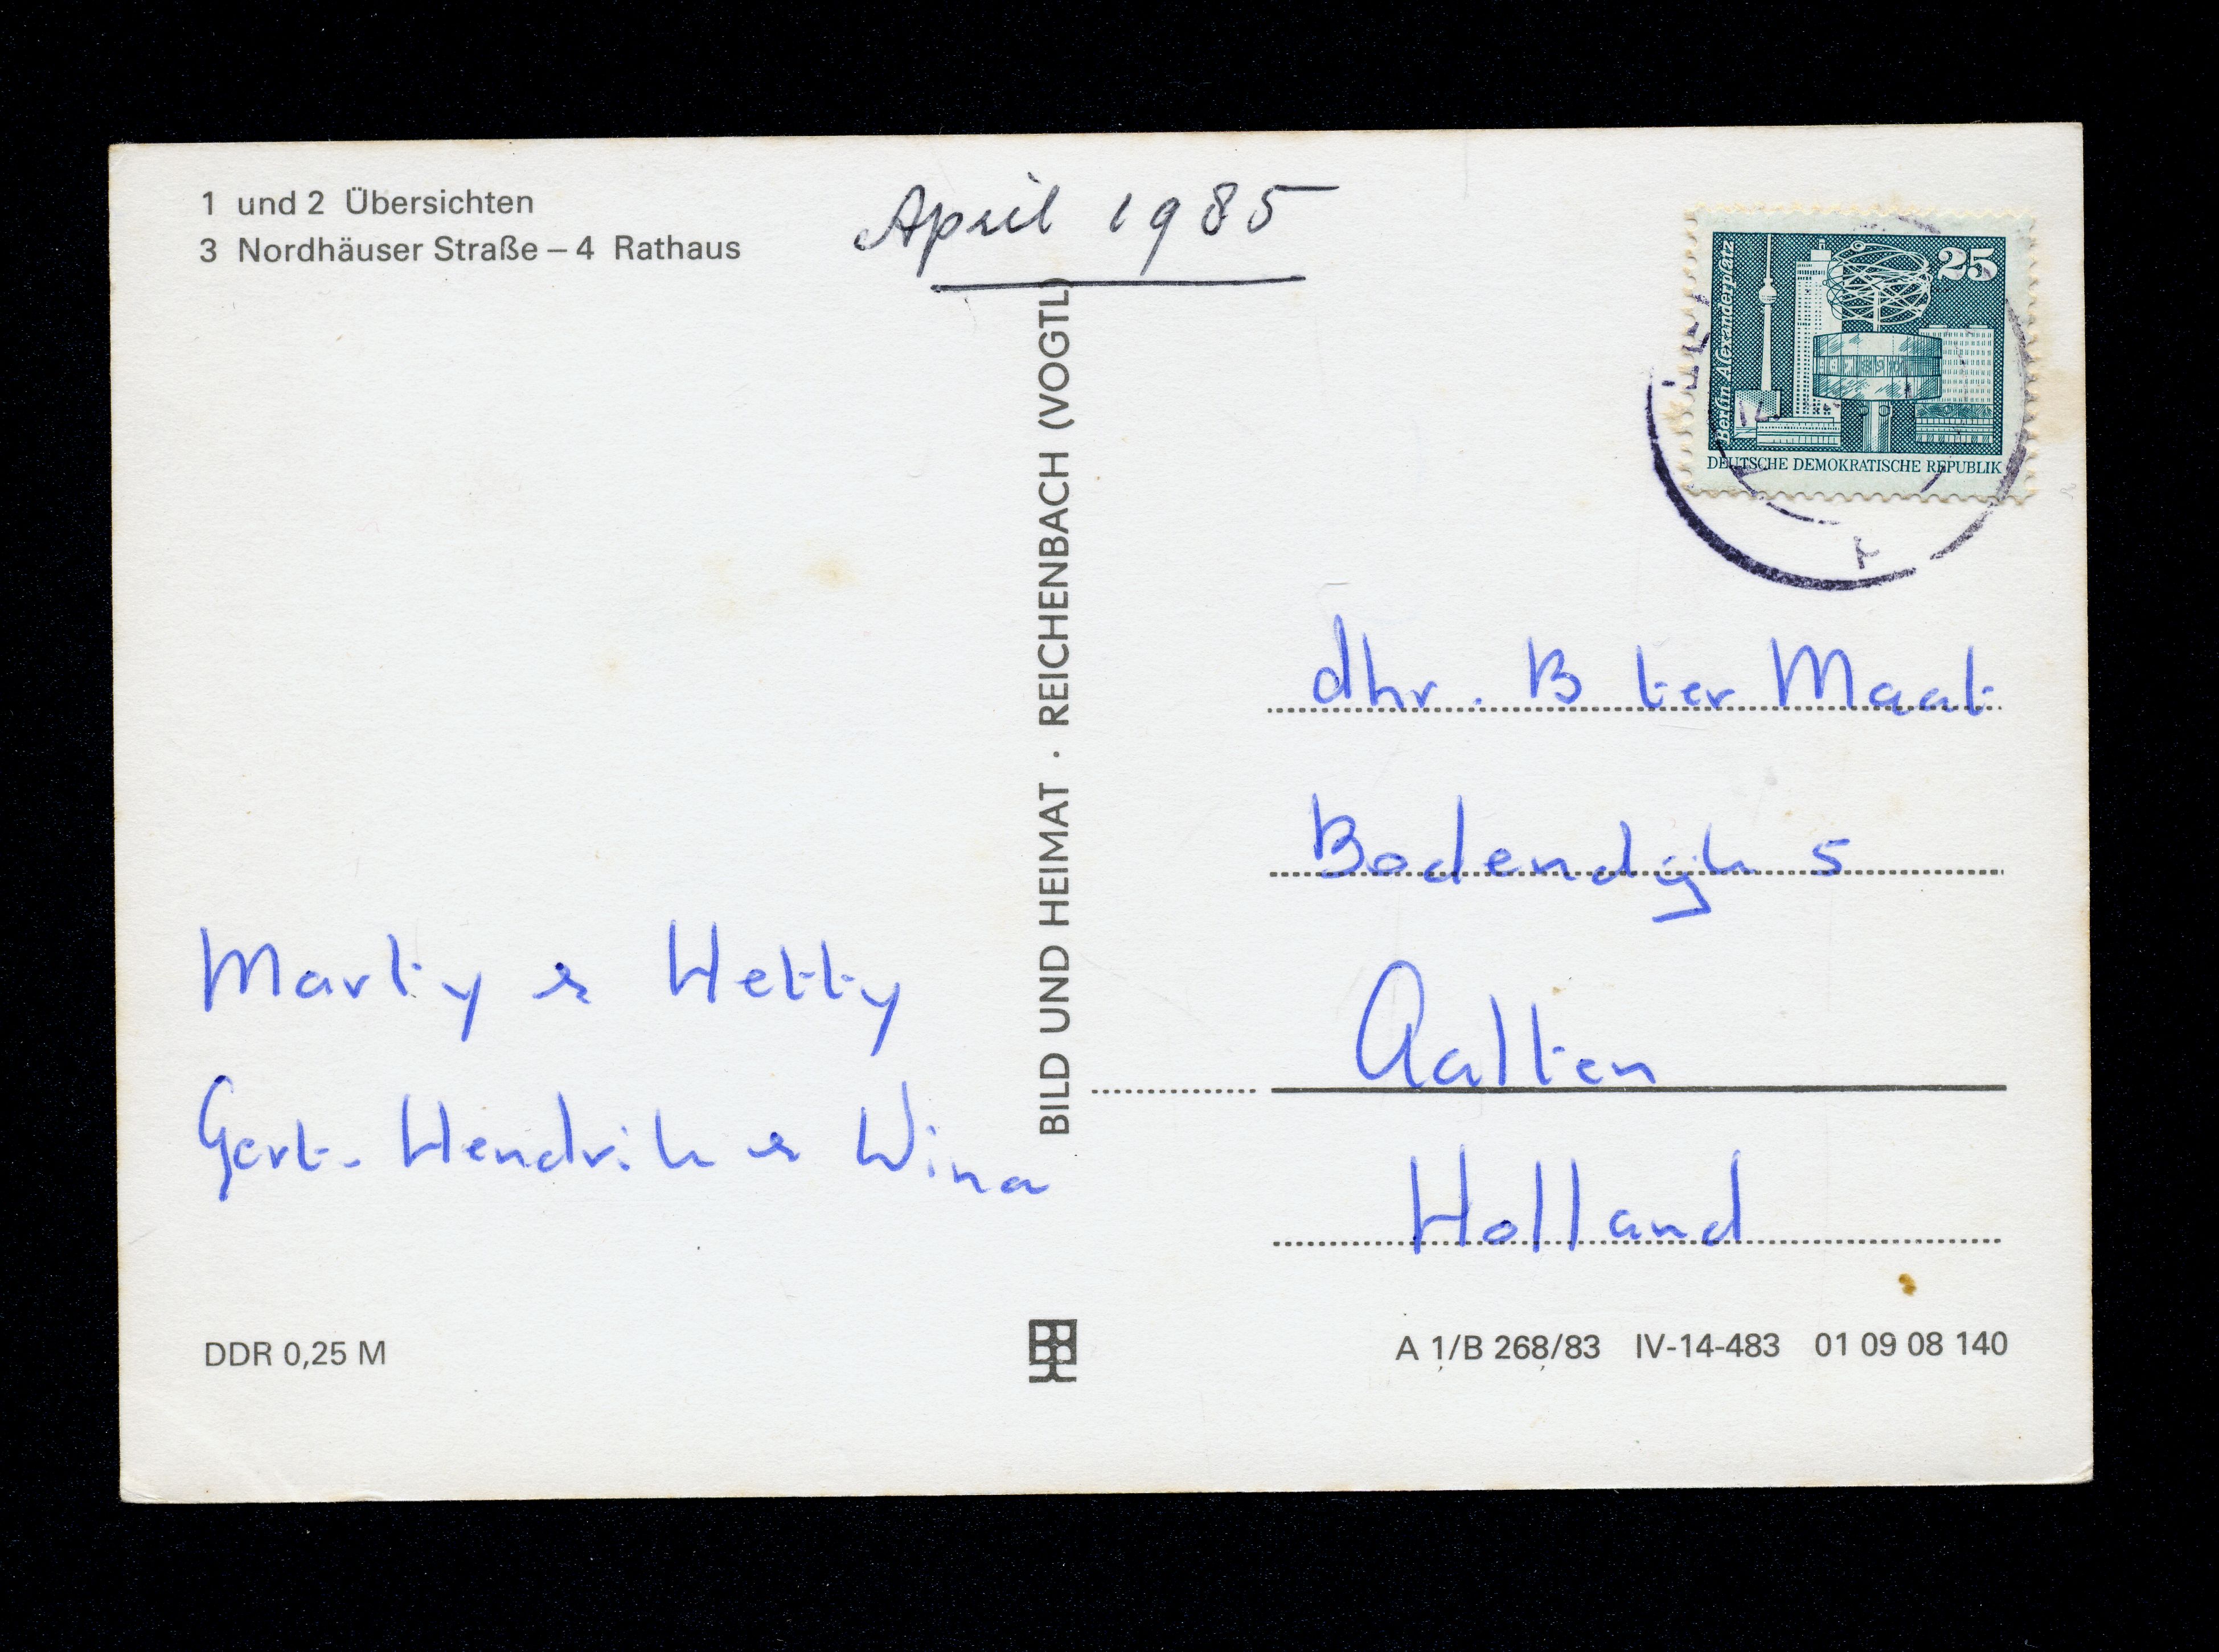 1 und 2 Übersichten
3 Nordhäuser Straße – 4 Rathaus
April 1985
Berlin Alexanderplatz
25
DEUTSCHE DEMOKRATISCHE REPUBLIK
BILD UND HEIMAT · REICHENBACH (VOGTL)
dhr. B ter Maat
Bodendijk 5
Aalten
Holland
Marty & Hetty
Gert-Hendrik & Wina
DDR 0,25 M
A 1/B 268/83 IV-14-483 01 09 08 140